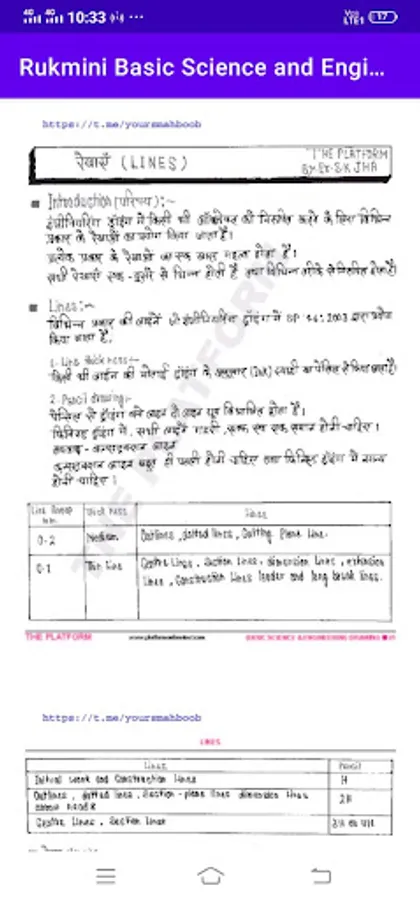 10:33
17
Rukmini Basic Science and Engi...
https://t.me/yoursmahboob
रेखाएँ (LINES)
THE PLATFORM
By Er. S.K JHA
Introduction (परिचय) :-
इंजीनियरिंग ड्राइंग में किसी भी ऑब्जेक्ट को निरूपित करने के लिए विभिन्न
प्रकार के रेखाओं का प्रयोग किया जाता है।
प्रत्येक प्रकार के रेखाओं का एक महत्व होता है।
सभी रेखाएँ एक-दूसरे से भिन्न होती हैं तथा विभिन्न तरीके से
Lines:-
विभिन्न प्रकार की लाइनें इंजीनियरिंग ड्राइंग में SP 46: 2003 द्वारा
किया जाता है.
1. Line thickness-
किसी भी लाईन की मोटाई ड्राइंग के अनुसार (Ink) स्याही या पेंसिल से किया जाता है।
2. Pencil drawing:-
पेन्सिल से ड्राइंग
ड्राइंग में, सभी लाइनें एक समान होनी चाहिए।
कन्सट्रक्शन लाइन
कन्सट्रक्शन लाइन बहुत ही पतली होनी चाहिए तथा ड्राइंग में
होनी चाहिए।
Line Group mm. Thickness Lines
0.2 Medium Outlines, dotted lines, Cutting Plane Line.
0.1 Thin Line Centre Lines, Section Lines, dimension Lines, extension
Line, Construction Lines leader and long break lines.
THE PLATFORM
BASIC SCIENCE & ENGINEERING DRAWING
https://t.me/yoursmahboob
LINES
Lines Pencil
Initial work and Construction Lines H
Outlines, dotted lines, Section-plane lines dimension lines 2H
Centre Lines, Section Lines